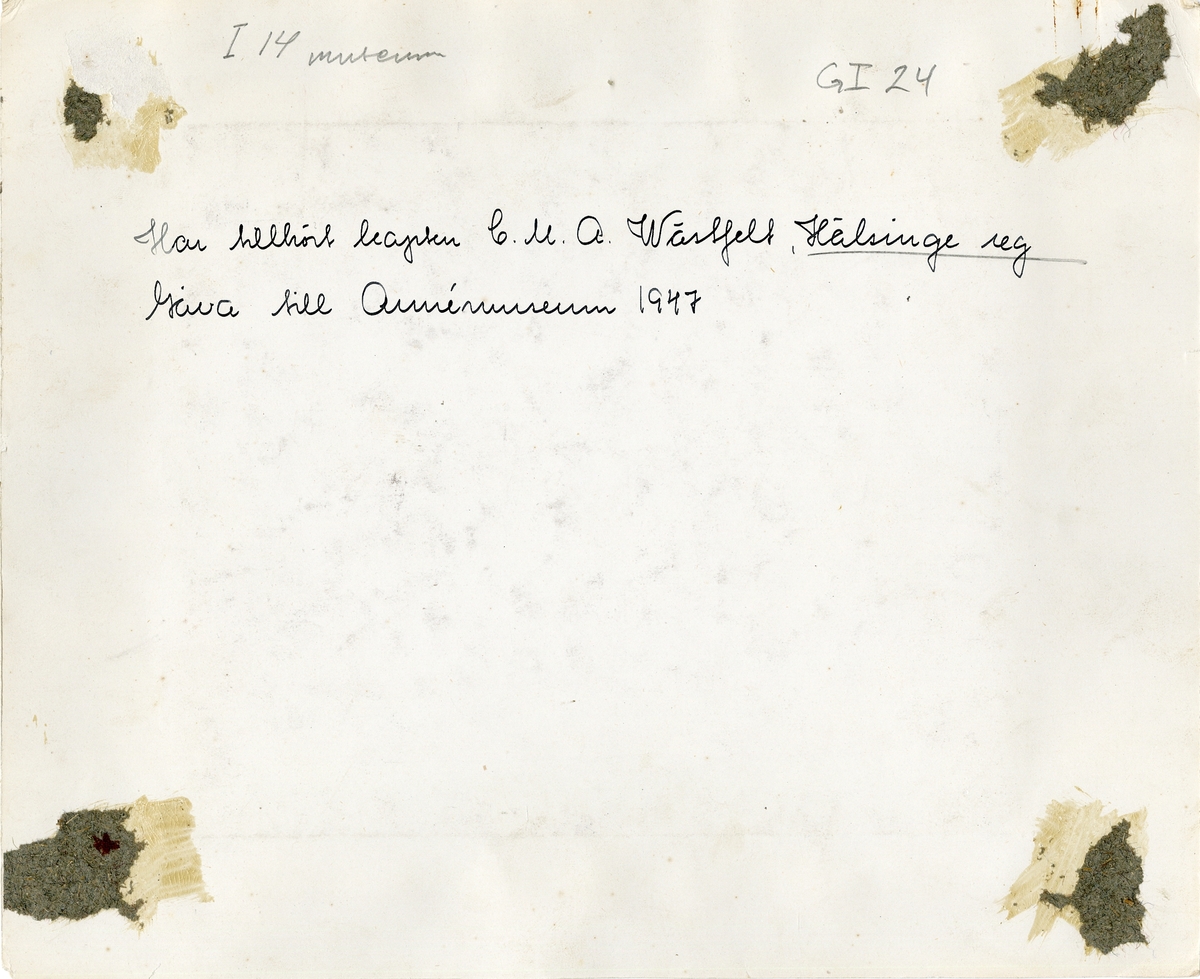 I 14 museum
GI 24
Har tillhört kapten C. M. A. Wästfelt, Hälsinge reg
Gåva till Armémuseum 1947